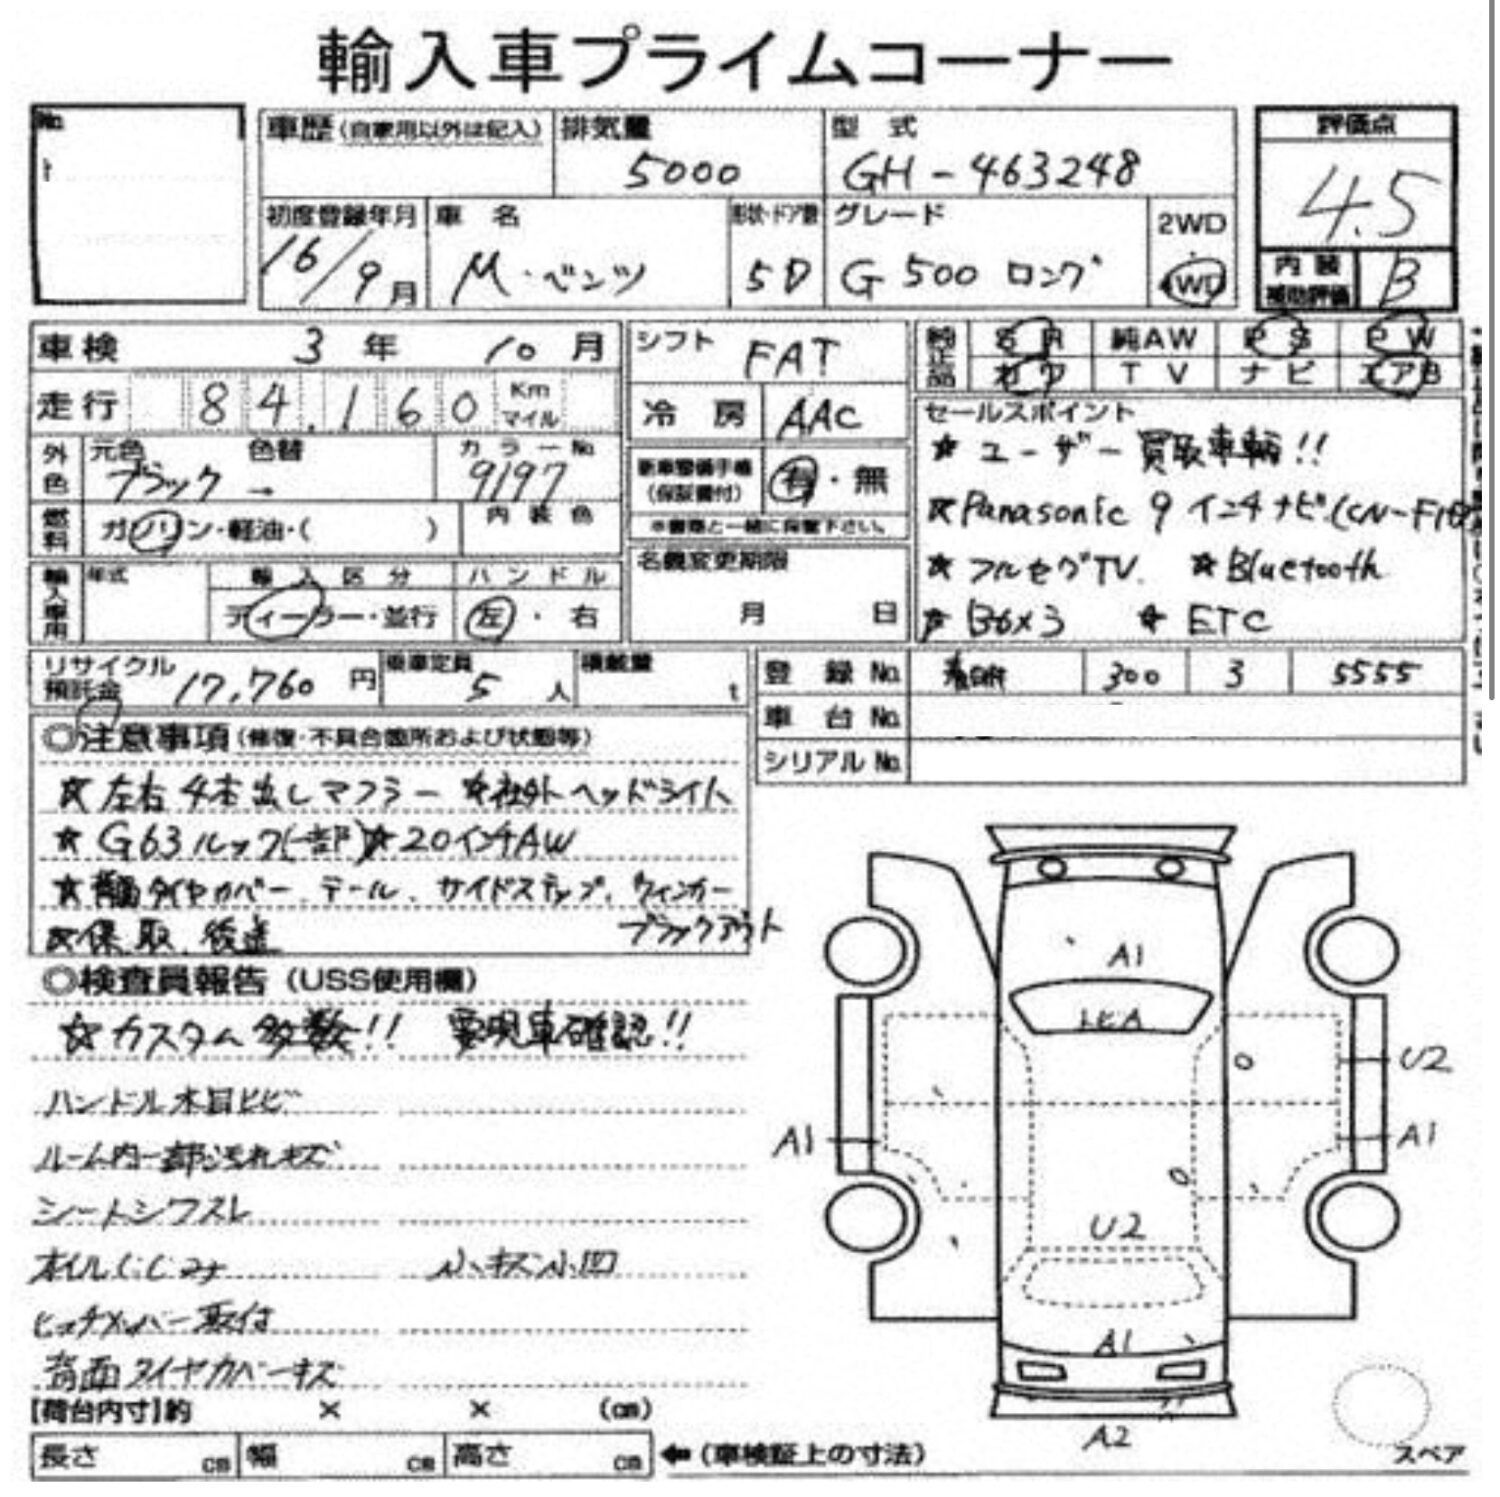 輸入車プライムコーナー
No.
車歴 (自家用以外は記入) 排気量 型式 評価点
5000 GH-463248 4.5
初度登録年月 車名 形状・ドア数 グレード 2WD
16/9月 M・ベンツ 5D G500 ロング 4WD
内装補助評価 B
車検 3年 10月 シフト FAT
純正品 SR 純AW PS PW
カワ TV ナビ エアB
走行 84,160 Km マイル 冷房 AAC
セールスポイント
★ユーザー買取車輌!!
★Panasonic 9インチナビ(CN-F1
★フルセグTV. ★Bluetooth
★B6×3 ★ETC
外色 元色 色替 カラーNo.
ブラック → 9197
新車整備手帳(保証書付) 有・無
※書類と一緒に保管下さい。
燃料 ガソリン・軽油・( ) 内装色
名義変更期限
月 日
輸入車用 年式 輸入区分 ハンドル
ディーラー・並行 左・右
リサイクル預託金 17,760円 乗車定員 5人 積載量 t
登録No. 300 3 5555
車台No.
シリアルNo.
◎注意事項(修復・不具合箇所および状態等)
★左右4本出しマフラー ★社外ヘッドライト
★G63ルック(一部)★20インチAW
★背面タイヤカバー、テール、サイドステップ、ウィンカー
ブラックアウト
★保、取、後送
◎検査員報告(USS使用欄)
☆カスタム多数!! 要現車確認!!
ハンドル木目ヒビ
ルーム内一部汚れキズ
シートシワスレ
オイルにじみ 小キズ小凹
ヒッチメンバー取付
背面タイヤカバーキズ
[荷台内寸]約 × × (cm)
長さ cm 幅 cm 高さ cm ←(車検証上の寸法)
A1
トビA
U2
A1
A1
U2
A1
A2
スペア